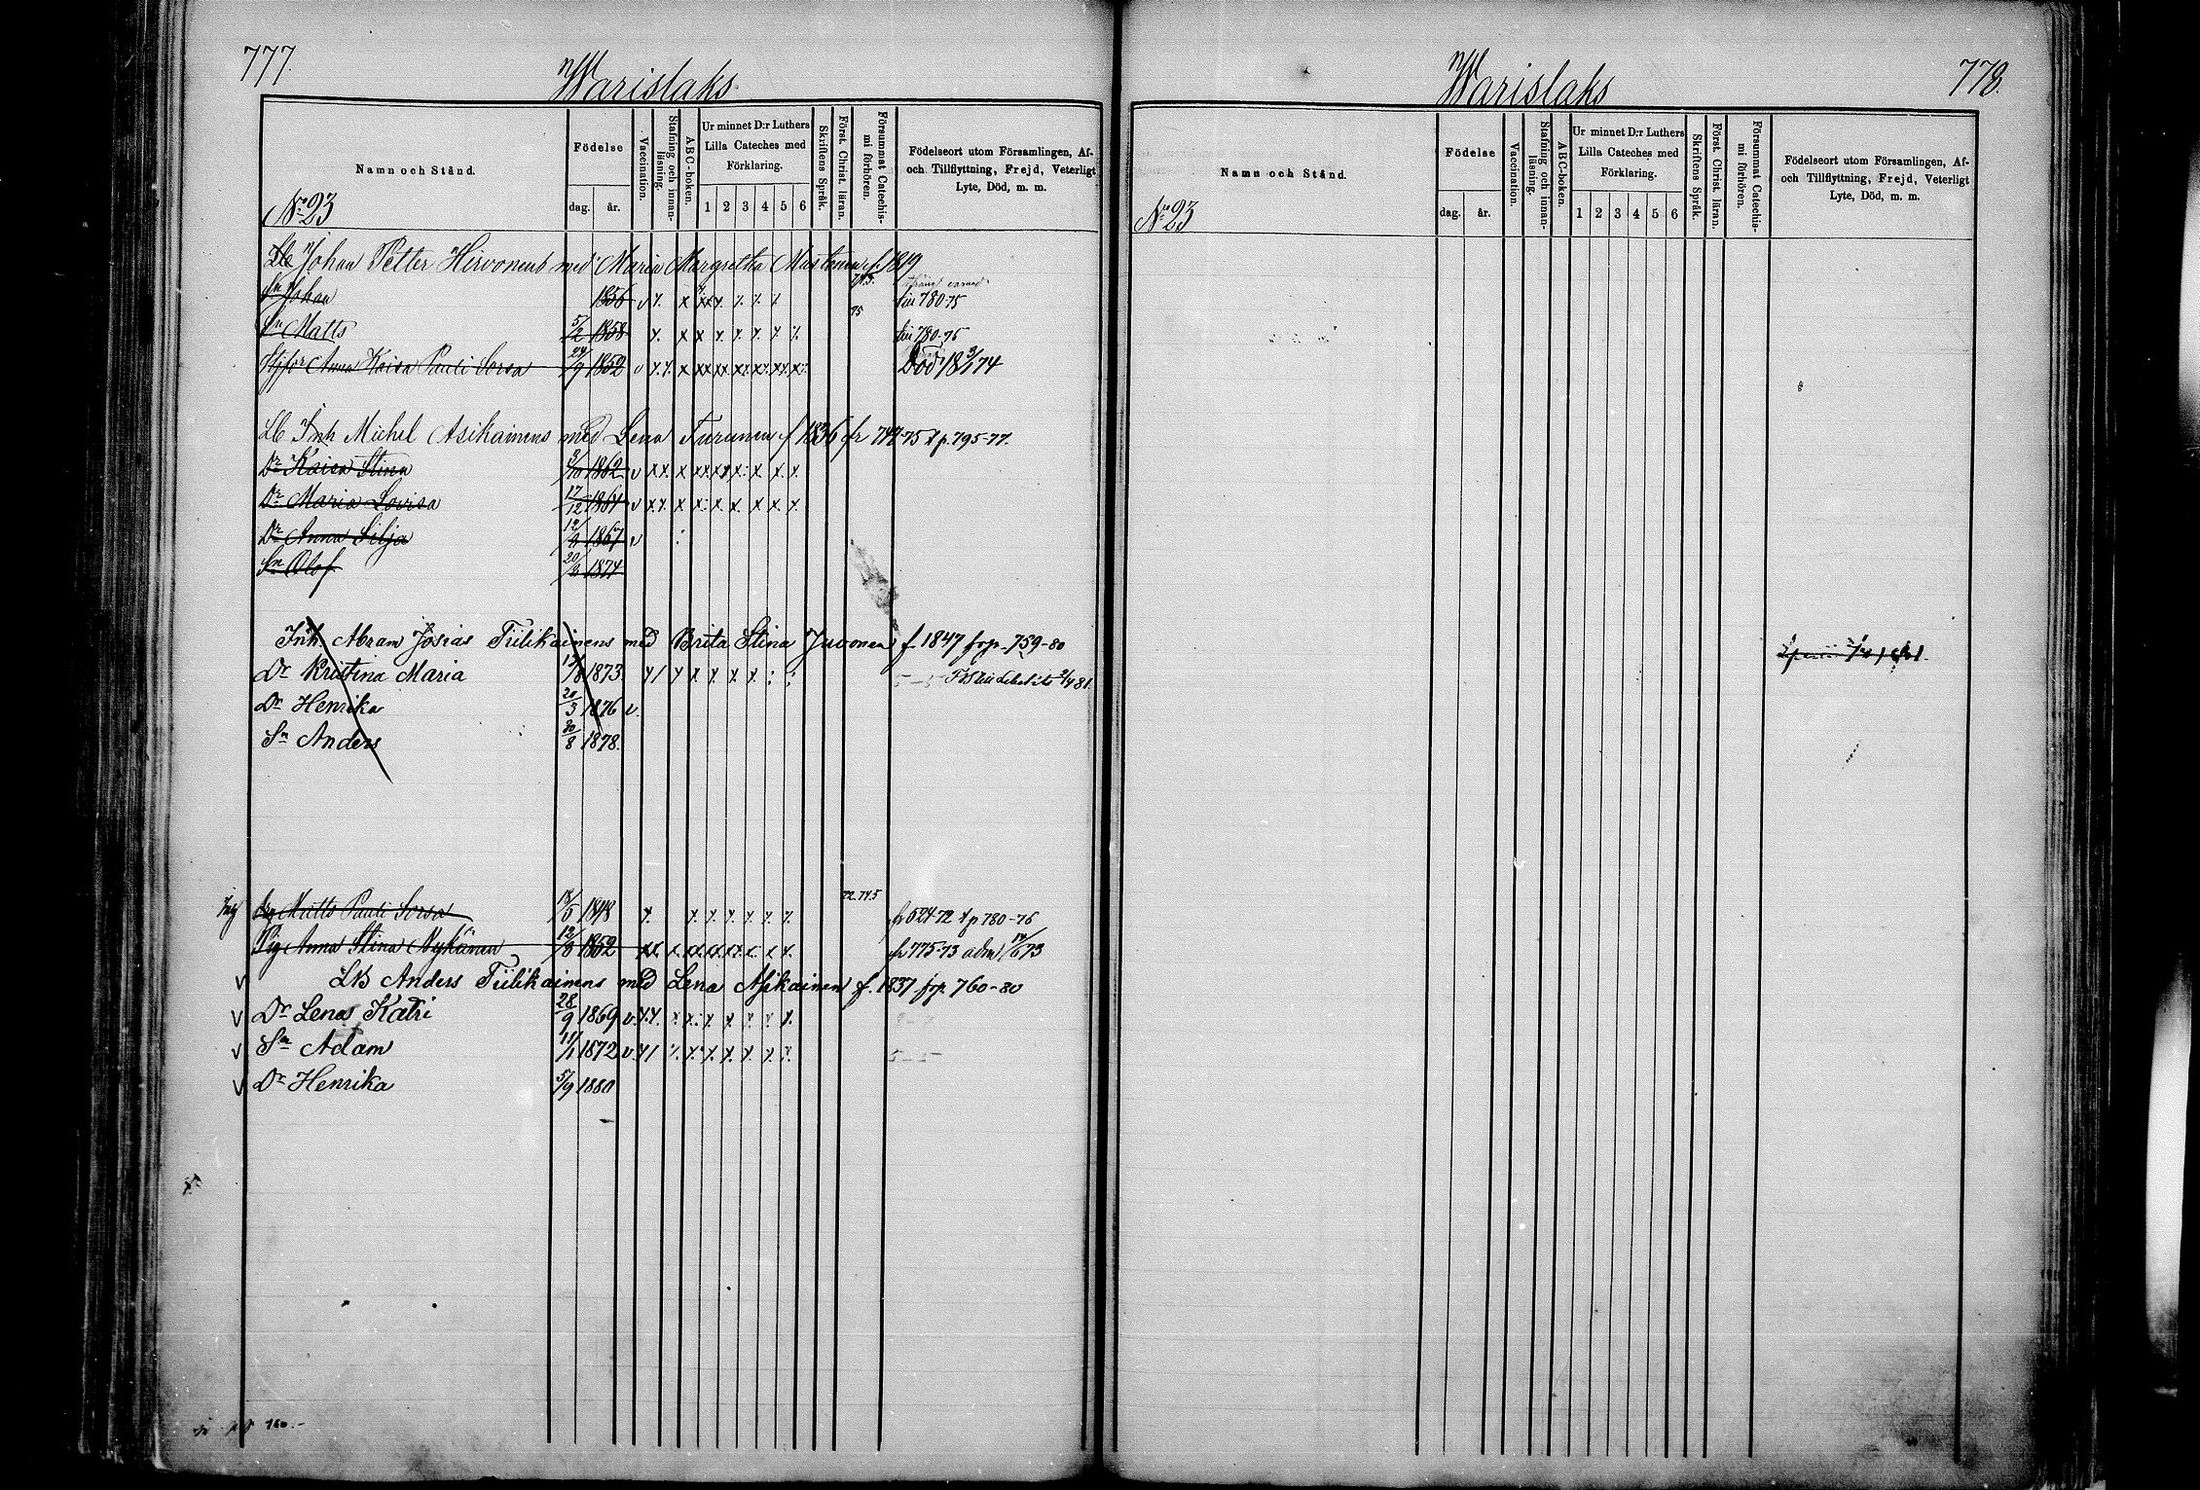 777.
Warislaks.
Namn och Stånd.
Födelse
dag. år.
Vaccination.
Stafning och innanläsning.
ABC-boken.
Ur minnet D:r Luthers Lilla Cateches med Förklaring.
1 2 3 4 5 6
Skriftens Språk.
Först. Christ. läran.
Försummat Catechismi förhören.
Födelseort utom Församlingen, Af- och Tillflyttning, Frejd, Veterligt Lyte, Död, m. m.
No 23
Lb Johan Petter Hirvonens med Maria Margretha f. 1819
Sn Johan 1856 780-75
Sn Matts 5/2 1858 780-75
Anna Kaisa Pauli Sorsa 24/9 1852 Död 18 3/1 74
Lb Inh Michel Asikainens med Lena Turunen f 1836 fr 744-75 t p. 795-77.
Dr Kaisa Stina 3/10 1862
Dr Maria Lovisa 17/12 1861
Dr Anna Silja 1867
Sn Olof 20/3 1874
Inh. Abram Josias Tiilikainens med Brita Stina Juvonen f. 1847 frp. 759-80
Dr Kristina Maria 1873
Dr Henrika 20/3 1876
Sn Anders 30/8 1878.
Matts Pauli Sorsa 18/5 1848 72. 74.5 fr 624-72 t p 780-76
Pig Anna Stina Nykänen 12/8 1852 fr 775-73
LB Anders Tiilikainens med Lena Asikainen f. 1837 frp. 760-80
Dr Lena Katri 28/9 1869
Sn Adam 11/1 1872
Dr Henrika 5/9 1880
778.
Warislaks
Namn och Stånd.
Födelse
dag. år.
Vaccination.
Stafning och innanläsning.
ABC-boken.
Ur minnet D:r Luthers Lilla Cateches med Förklaring.
1 2 3 4 5 6
Skriftens Språk.
Först. Christ. läran.
Försummat Catechismi förhören.
Födelseort utom Församlingen, Af- och Tillflyttning, Frejd, Veterligt Lyte, Död, m. m.
No 23